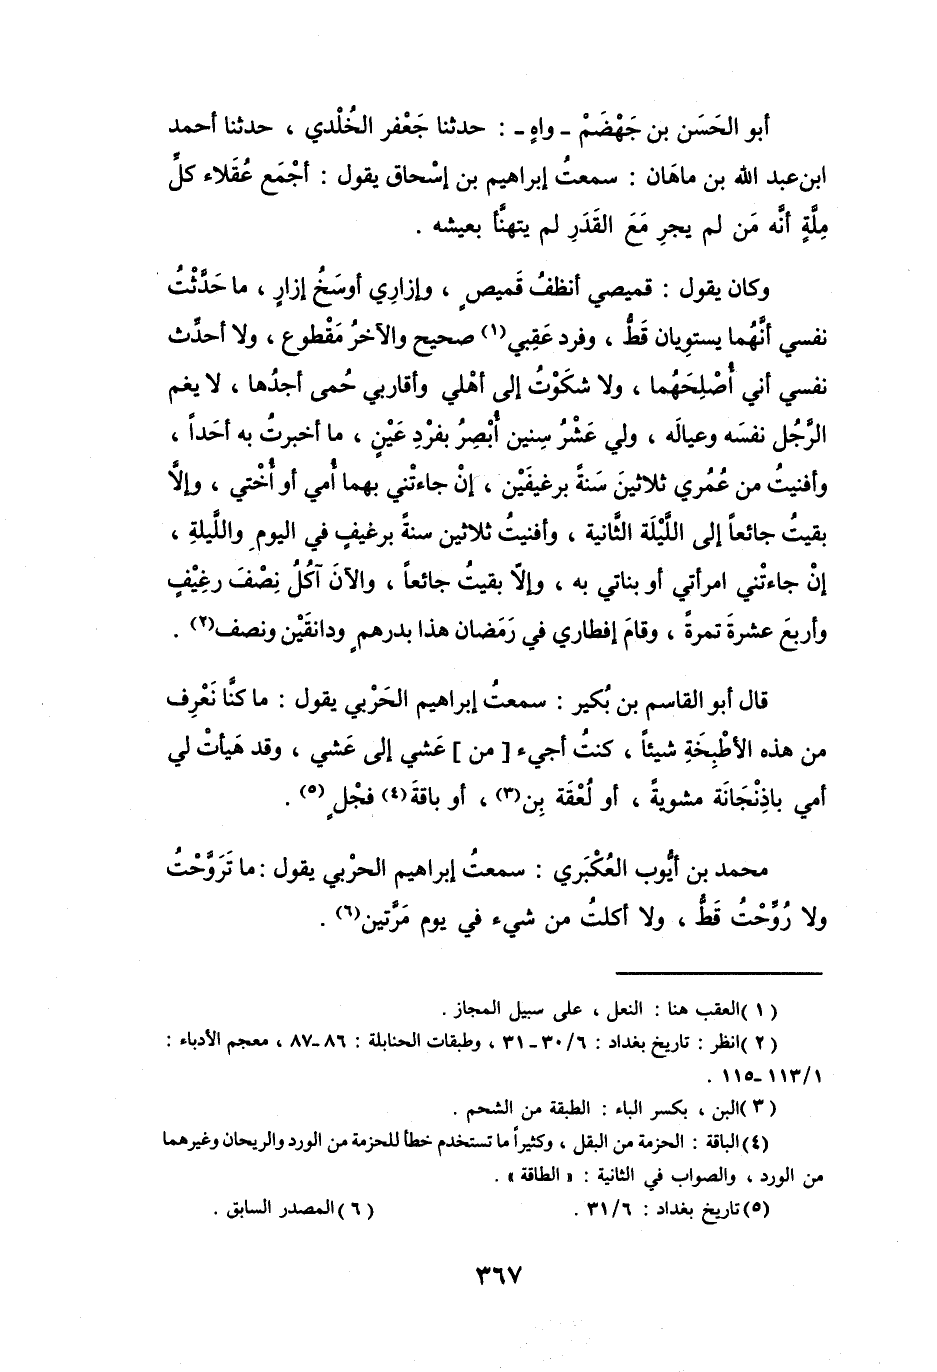 أبو الحَسَن بن جَهْضَمْ ـ واهٍ ـ : حدثنا جَعْفر الخُلْدي ، حدثنا أحمد
ابن عبد الله بن ماهَان : سمعتُ إبراهيم بن إسْحاق يقول : أجْمَع عُقَلاء كلِّ
مِلَّةٍ أنَّه مَن لم يجرِ مَعَ القَدَرِ لم يتهنَّأ بعيشه .
وكان يقول : قميصي أنظفُ قَميصٍ ، وإزارِي أوسَخُ إزارٍ ، ما حَدَّثْتُ
نفسي أنَّهُما يستوِيان قَطُّ ، وفرد عَقِبي (١) صحيح والآخرُ مَقْطوع ، ولا أحدِّث
نفسي أني أُصْلِحَهُما ، ولا شكَوْتُ إلى أهْلي وأقاربي حُمى أجدُها ، لا يغم
الرَّجُل نفسَه وعيالَه ، ولي عَشْرُ سِنين أُبْصِرُ بفرْدِ عَيْنٍ ، ما أخبرتُ به أحَداً ،
وأفنيتُ من عُمُري ثلاثينَ سَنةً برغيفَيْن ، إنْ جاءتْني بهما أُمي أو أُخْتي ، وإلَّا
بقيتُ جائعاً إلى اللَّيْلَة الثَّانية ، وأفنيتُ ثلاثين سنةً برغيفٍ في اليومِ واللَّيلةِ ،
إنْ جاءتْني امرأتي أو بناتي به ، وإلّا بقيتُ جائعاً ، والآنَ آكُلُ نِصْفَ رغِيْفٍ
وأربعَ عشرةَ تمرةً ، وقامَ إفطاري في رَمَضان هذا بدرهمٍ ودانقَيْن ونصف(٢) .
قال أبو القاسم بن بُكير : سمعتُ إبراهيم الحَرْبي يقول : ما كنَّا نَعْرِف
من هذه الأطْبِخَةِ شيئاً ، كنتُ أجيء [ من ] عَشي إلى عَشي ، وقد هَيأتْ لي
أمي باذِنْجَانَة مشويةً ، أو لُعْقَة بِن(٣) ، أو باقةَ(٤) فجْلٍ (٥) .
محمد بن أيُّوب العُكْبَري : سمعتُ إبراهيم الحرْبي يقول : ما تَرَوَّحْتُ
ولا رُوِّحْتُ قَطُّ ، ولا أكلتُ من شيء في يوم مَرَّتين(٦) .
( ١ )العقب هنا : النعل ، على سبيل المجاز .
( ٢ )انظر : تاريخ بغداد : ٦/ ٣٠ـ ٣١ ، وطبقات الحنابلة : ٨٦ـ ٨٧ ، معجم الأدباء :
١/ ١١٣ـ ١١٥ .
( ٣ )البن ، بكسر الباء : الطبقة من الشحم .
(٤)الباقة : الحزمة من البقل ، وكثيراً ما تستخدم خطأ للحزمة من الورد والريحان وغيرهما
من الورد ، والصواب في الثانية : « الطاقة » .
(٥)تاريخ بغداد : ٦/ ٣١ . ( ٦ )المصدر السابق .
٣٦٧